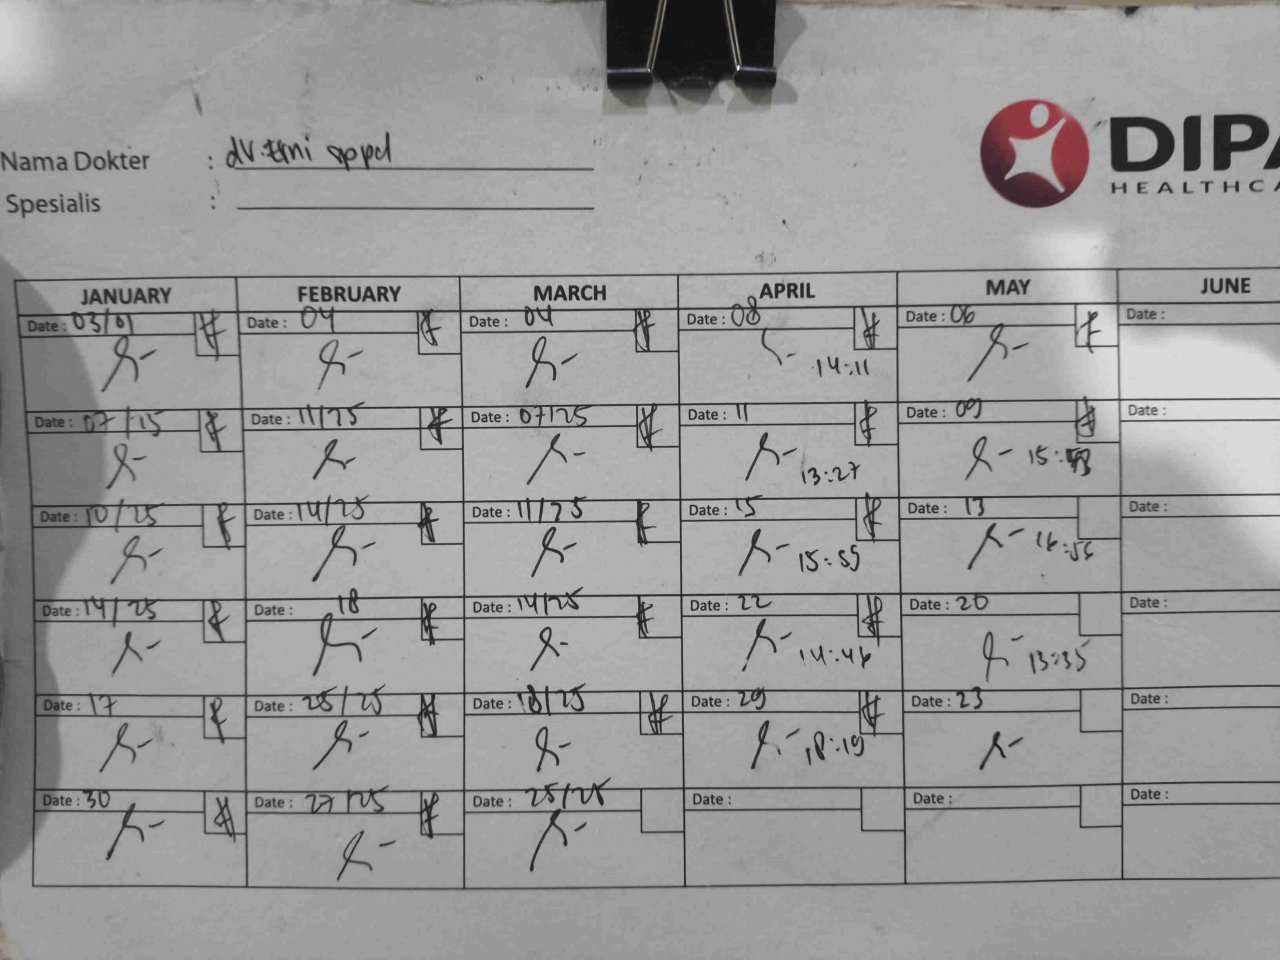 Nama Dokter : dr. Erni sppd
Spesialis :
DIPA
HEALTHCA
JANUARY FEBRUARY MARCH APRIL MAY JUNE
Date : 03/01 Date : 04 Date : 04 Date : 08 Date : 06 Date :
14:11
Date : 07/15 Date : 11/25 Date : 07/25 Date : 11 Date : 09 Date :
13:27 15:
Date : 10/25 Date : 14/25 Date : 11/25 Date : 15 Date : 13 Date :
15:55 16:55
Date : 14/25 Date : 18 Date : 14/25 Date : 22 Date : 20 Date :
14:46 13:35
Date : 17 Date : 25/25 Date : 18/25 Date : 29 Date : 23 Date :
18:19
Date : 30 Date : 27/25 Date : 25/25 Date : Date : Date :